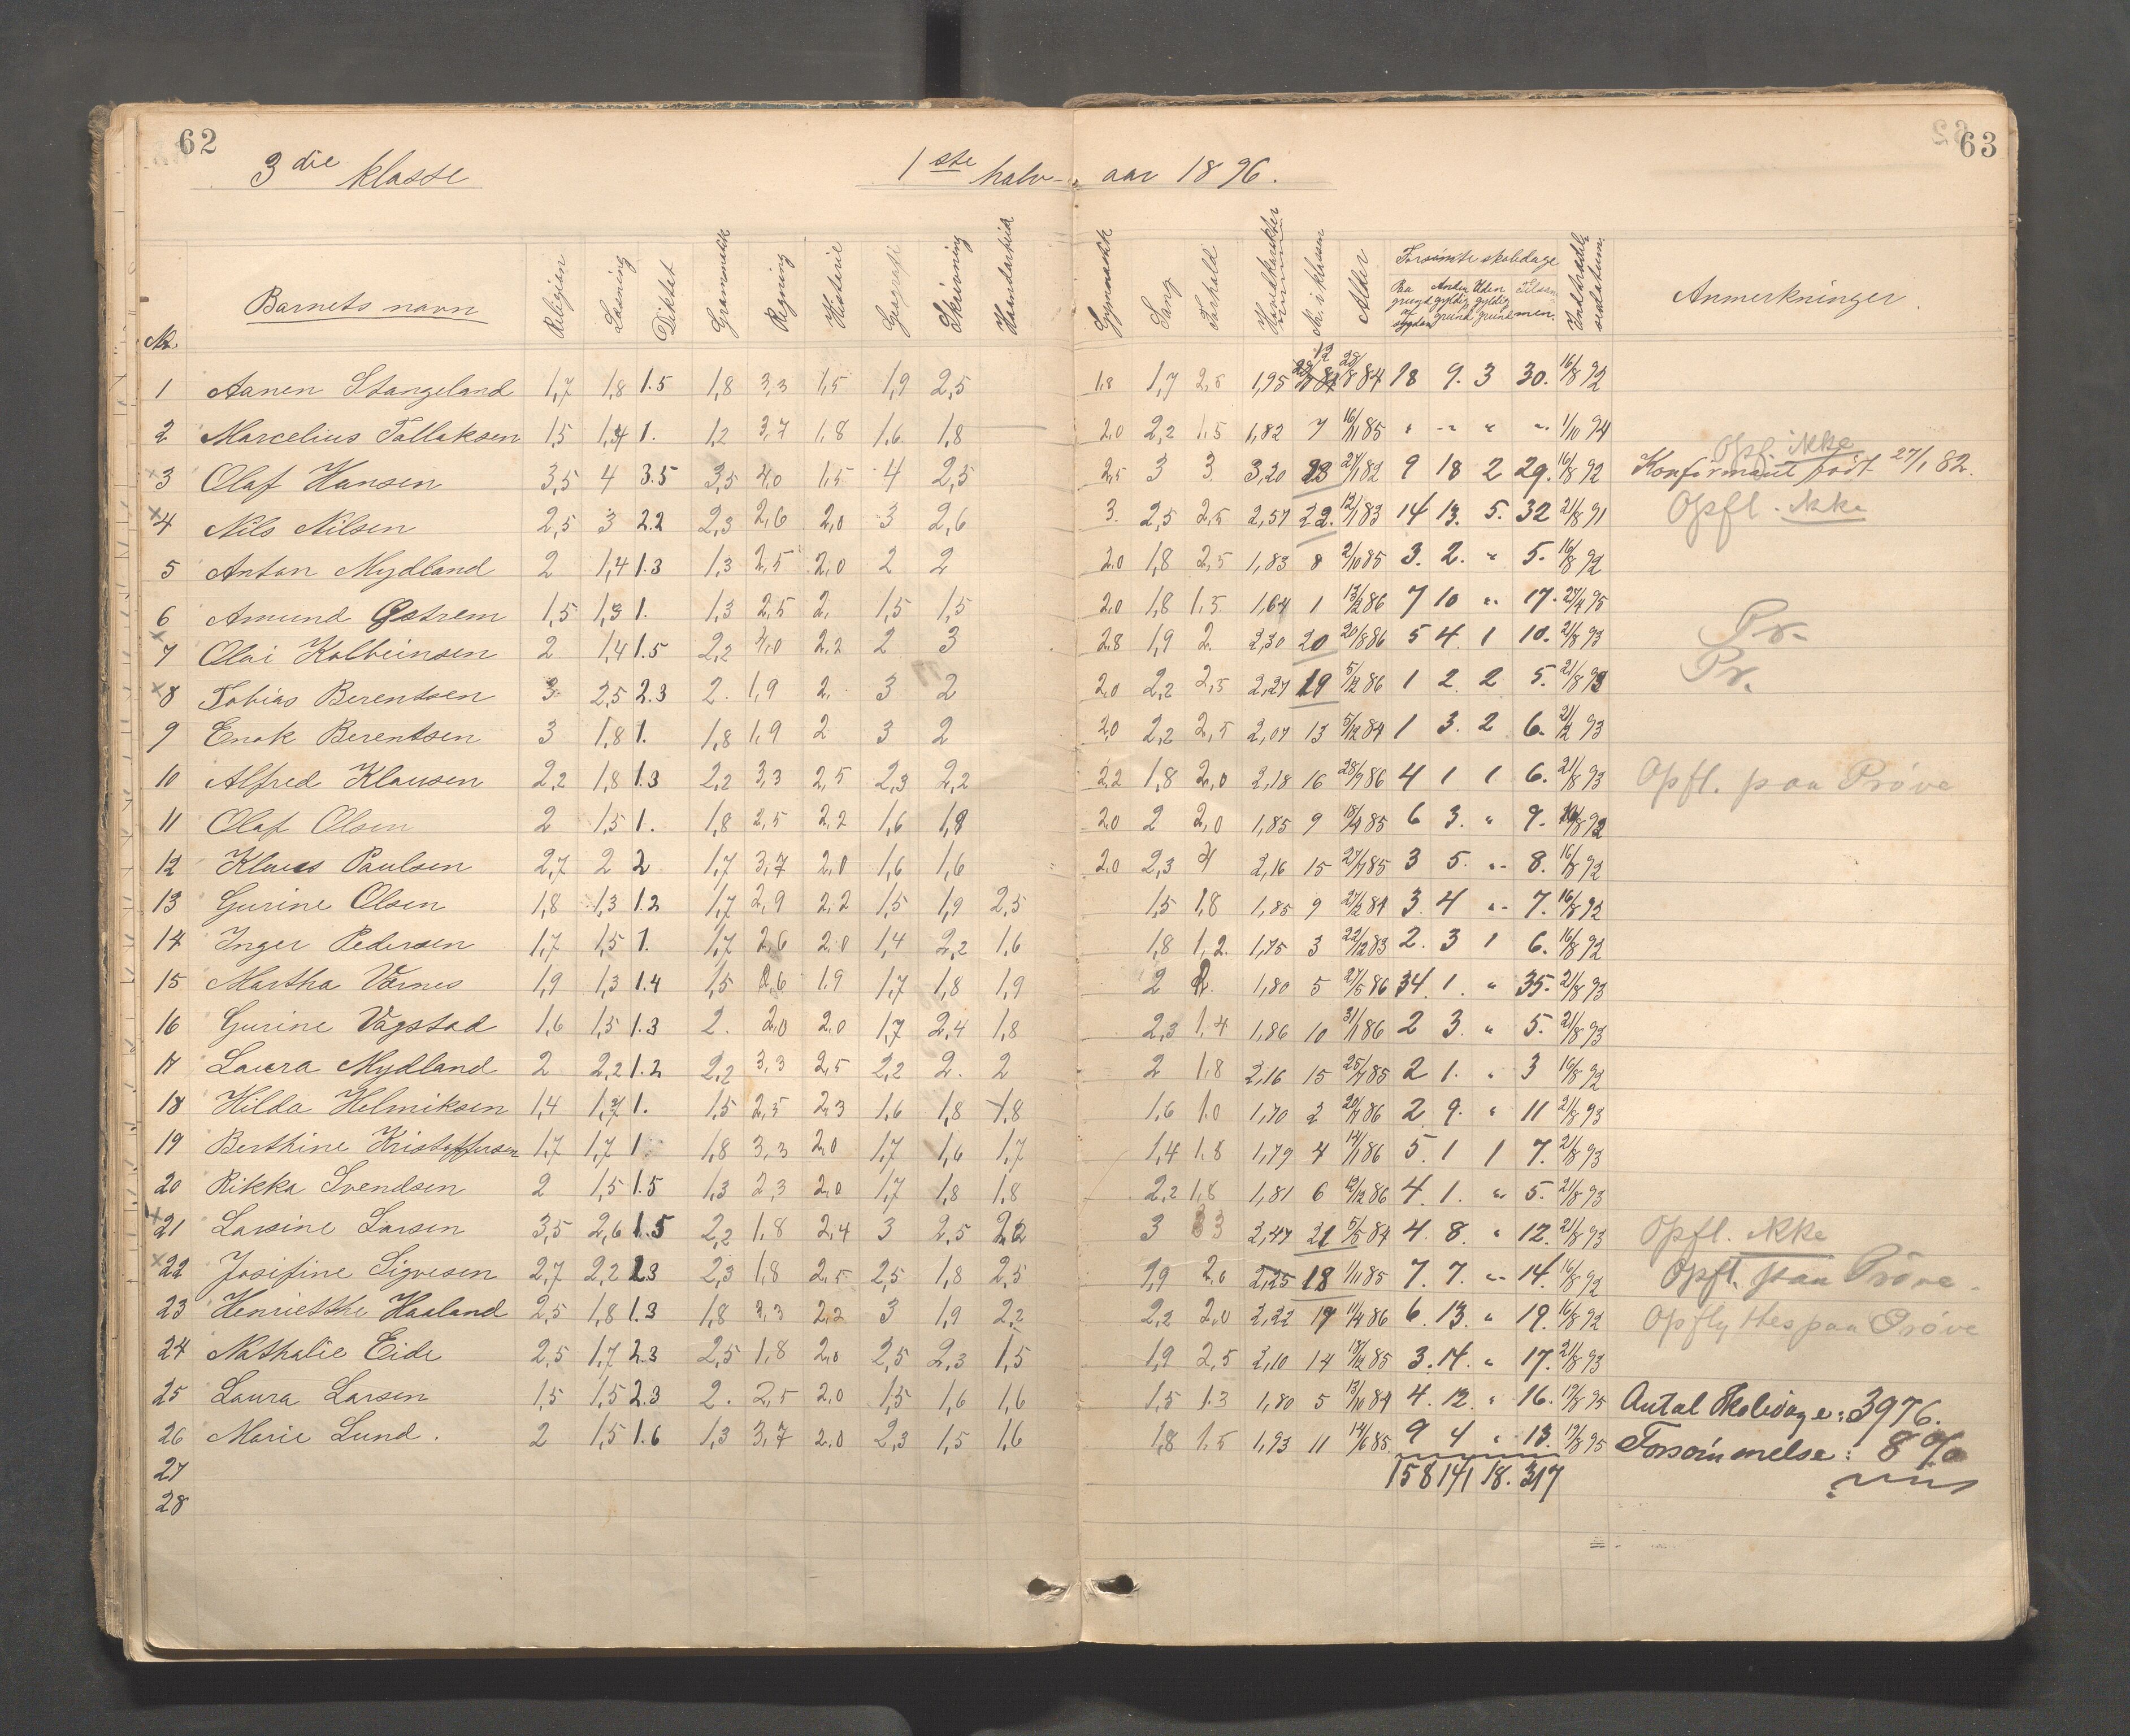 62
63
3 die klasse 1ste halv- aar 1896.
Nr. Barnets navn Religion Læsning Diktat Grammatik Regning Historie Geografi Skrivning Haandarbeid Gymnastik Sang Forhold Hovedkarakter Nr. i klassen Alder Forsømte skoledage Indtrædelsesdatum Anmerkninger.
Paa grund af sygdom Anden gyldig grund Uden gyldig grund Tilsammen.
1 Aanen Stangeland 1,7 1,8 1.5 1,8 3,3 1,5 1,9 2,5 1,8 1,7 2,5 1,95 12 28/8 84 18 9. 3 30. 16/8 92
2 Marcelius Tallaksen 1,5 1,4 1. 1,2 3,7 1,8 1,6 1,8 2,0 2,2 1,5 1,82 7 16/11 85 " " " " 1/10 94
x3 Olaf Hansen 3,5 4 3.5 3,5 4,0 1,5 4 2,5 2,5 3 3 3,20 23 27/1 82 9 18 2 29. 16/8 92 Opf. ikke Konfirmant født 27/1 82.
x4 Nils Nilsen 2,5 3 2.2 2,3 2,6 2,0 3 2,6 3. 2,5 2,5 2,57 22. 12/1 83 14 13. 5. 32 21/8 91 Opfl. ikke
5 Anton Mydland 2 1,4 1.3 1,3 2,5 2,0 2 2 2,0 1,8 2,5 1,83 8 2/10 85 3. 2. " 5. 16/8 92
6 Amund Østrem 1,5 1,3 1. 1,3 2,5 2, 1,5 1,5 2,0 1,8 1,5 1,64 1 13/2 86 7 10 " 17. 27/4 95
x7 Olai Kolbeinsen 2 1,4 1.5 2,2 4,0 2,2 2 3 2,8 1,9 2. 2,30 20 20/8 86 5 4. 1 10. 21/8 93 Pr.
x8 Tobias Berentsen 3 2,5 2.3 2. 1,9 2, 3 2 2,0 2,2 2,5 2,27 19 5/12 86 1 2. 2 5. 21/8 93 Pr.
9 Enok Berentsen 3 1,8 1. 1,8 1,9 2 3 2 2,0 2,2 2,5 2,07 13 5/12 84 1 3. 2 6. 21/12 93
10 Alfred Klausen 2,2 1,8 1.3 2,2 3,3 2,5 2,3 2,2 2,2 1,8 2,0 2,18 16 28/7 86 4 1 1 6. 21/8 93 Opfl. paa Prøve
11 Olaf Olsen 2 1,5 1. 1,8 2,5 2,2 1,6 1,9 2,0 2 2,0 1,85 9 18/4 85 6 3. " 9. 16/8 92
12 Klaus Paulsen 2,7 2 2 1,7 3,7 2,0 1,6 1,6 2,0 2,3 2,16 15 27/7 85 3 5. " 8. 16/8 92
13 Gurine Olsen 1,8 1,3 1.2 1,7 2,9 2,2 1,5 1,9 2,5 1,5 1,8 1,85 9 27/12 84 3. 4 " 7. 16/8 92
14 Inger Pedersen 1,7 1,5 1. 1,7 2,6 2,0 1,4 2,2 1,6 1,8 1,2. 1,75 3 22/12 83 2. 3 1 6. 16/8 92
15 Martha Varnes 1,9 1,3 1.4 1,5 2,6 1,9 1,7 1,8 1,9 2 2. 1,80 5 27/5 86 34. 1. " 35. 21/8 93
16 Gurine Vagstad 1,6 1,5 1.3 2. 2,0 2,0 1,7 2,4 1,8 2,3 1,4 1,86 10 31/1 86 2 3. " 5. 21/8 93
17 Laura Mydland 2 2,2 1.2 2,2 3,3 2,5 2,2 2. 2 2 1,8 2,16 15 25/7 85 2 1. " 3 16/8 92
18 Hilda Helmiksen 1,4 1. 1,5 2,5 2,3 1,6 1,8 1,8 1,6 1,0 1,70 2 20/7 86 2. 9. " 11 21/8 93
19 Berthine Kristoffersen 1,7 1,7 1 1,8 3,3 2,0 1,7 1,6 1,7 1,4 1,8 1,79 4 14/1 86 5. 1 1 7. 21/8 93
20 Rikka Svendsen 2 1,5 1.5 1,3 2,3 2,0 1,7 1,8 1,8 2,2 1,8 1,81 6 12/12 86 4. 1. " 5. 21/8 93
x21 Larsine Larsen 3,5 2,6 1.5 2,2 1,8 2,4 3 2,5 2,2 3 3 2,47 21 5/5 84 4. 8. " 12. 21/8 93 Opfl. ikke
x22 Josifine Sigvesen 2,7 2,2 2.3 2,3 1,8 2,5 2,5 1,8 2,5 1,9 2,0 2,25 18 1/11 85 7. 7. " 14. 16/8 92 Opfl. paa Prøve.
23 Henriethe Haaland 2,5 1,8 1.3 1,8 3,3 2,2 3 1,9 2,2 2,2 2,0 2,22 17 11/4 86 6. 13. " 19. 16/8 92 Opflyttes paa Prøve
24 Nathalie Eide 2,5 1,7 2.3 2,5 1,8 2,0 2,5 2,3 1,5 1,9 2,5 2,10 14 18/12 85 3. 14. " 17. 21/8 93
25 Laura Larsen 1,5 1,5 2.3 2. 2,5 2,0 1,5 1,6 1,6 1,5 1.3 1,80 5 13/10 84 4. 12. " 16. 17/8 95 Antal Skoledage: 3976.
26 Marie Lund. 2 1,5 1.6 1,3 3,7 2,0 2,3 1,5 1,6 1,8 1,5 1,93 11 14/6 85 9 4 " 13. 17/8 95 Forsømmelse: 8 %
27 158 141 18. 317
28